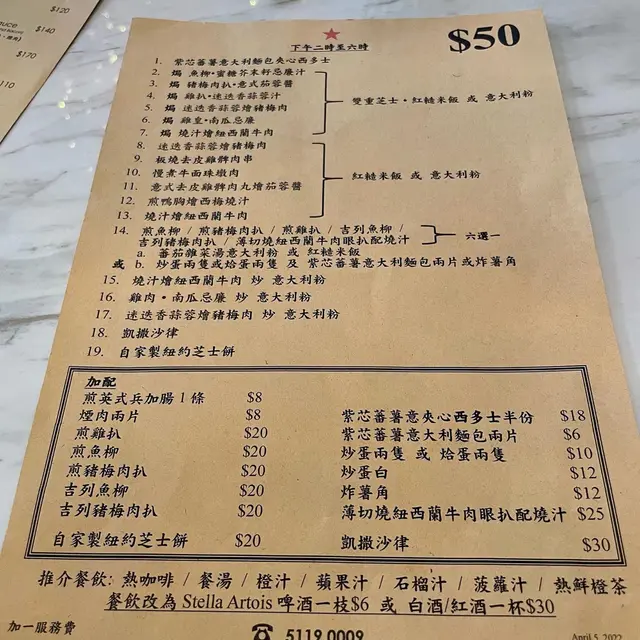 $120
$140
$170
$110
下午二時至六時
$50
1. 紫芯蕃薯意大利麵包夾心西多士
2. 焗 魚柳·蜜糖芥末籽忌廉汁
3. 焗 豬梅肉扒·意式茄蓉醬
4. 焗 雞扒·迷迭香蒜蓉汁
5. 焗 迷迭香蒜蓉燴豬梅肉
6. 焗 雞皇·南瓜忌廉
7. 焗 燒汁燴紐西蘭牛肉
雙重芝士·紅糙米飯 或 意大利粉
8. 迷迭香蒜蓉燴豬梅肉
9. 板燒去皮雞髀肉串
10. 慢煮牛面珠墩肉
11. 意式去皮雞髀肉丸燴茄蓉醬
12. 煎鴨胸燴西梅燒汁
13. 燒汁燴紐西蘭牛肉
紅糙米飯 或 意大利粉
14. 煎魚柳 / 煎豬梅肉扒 / 煎雞扒 / 吉列魚柳 /
吉列豬梅肉扒 / 薄切燒紐西蘭牛肉眼扒配燒汁
六選一
a. 蕃茄雜菜湯意大利粉 或 紅糙米飯
或 b. 炒蛋兩隻或烚蛋兩隻 及 紫芯蕃薯意大利麵包兩片或炸薯角
15. 燒汁燴紐西蘭牛肉 炒 意大利粉
16. 雞肉·南瓜忌廉 炒 意大利粉
17. 迷迭香蒜蓉燴豬梅肉 炒 意大利粉
18. 凱撒沙律
19. 自家製紐約芝士餅
加配
煎英式兵加腸1條 $8
煙肉兩片 $8
煎雞扒 $20
煎魚柳 $20
煎豬梅肉扒 $20
吉列魚柳 $20
吉列豬梅肉扒 $20
自家製紐約芝士餅 $20
紫芯蕃薯意夾心西多士半份 $18
紫芯蕃薯意大利麵包兩片 $6
炒蛋兩隻 或 烚蛋兩隻 $10
炒蛋白 $12
炸薯角 $12
薄切燒紐西蘭牛肉眼扒配燒汁 $25
凱撒沙律 $30
推介餐飲: 熱咖啡 / 餐湯 / 橙汁 / 蘋果汁 / 石榴汁 / 菠蘿汁 / 熱鮮橙茶
餐飲改為 Stella Artois 啤酒一枝$6 或 白酒/紅酒一杯$30
加一服務費
☎ 5119 0009
April 5, 2022